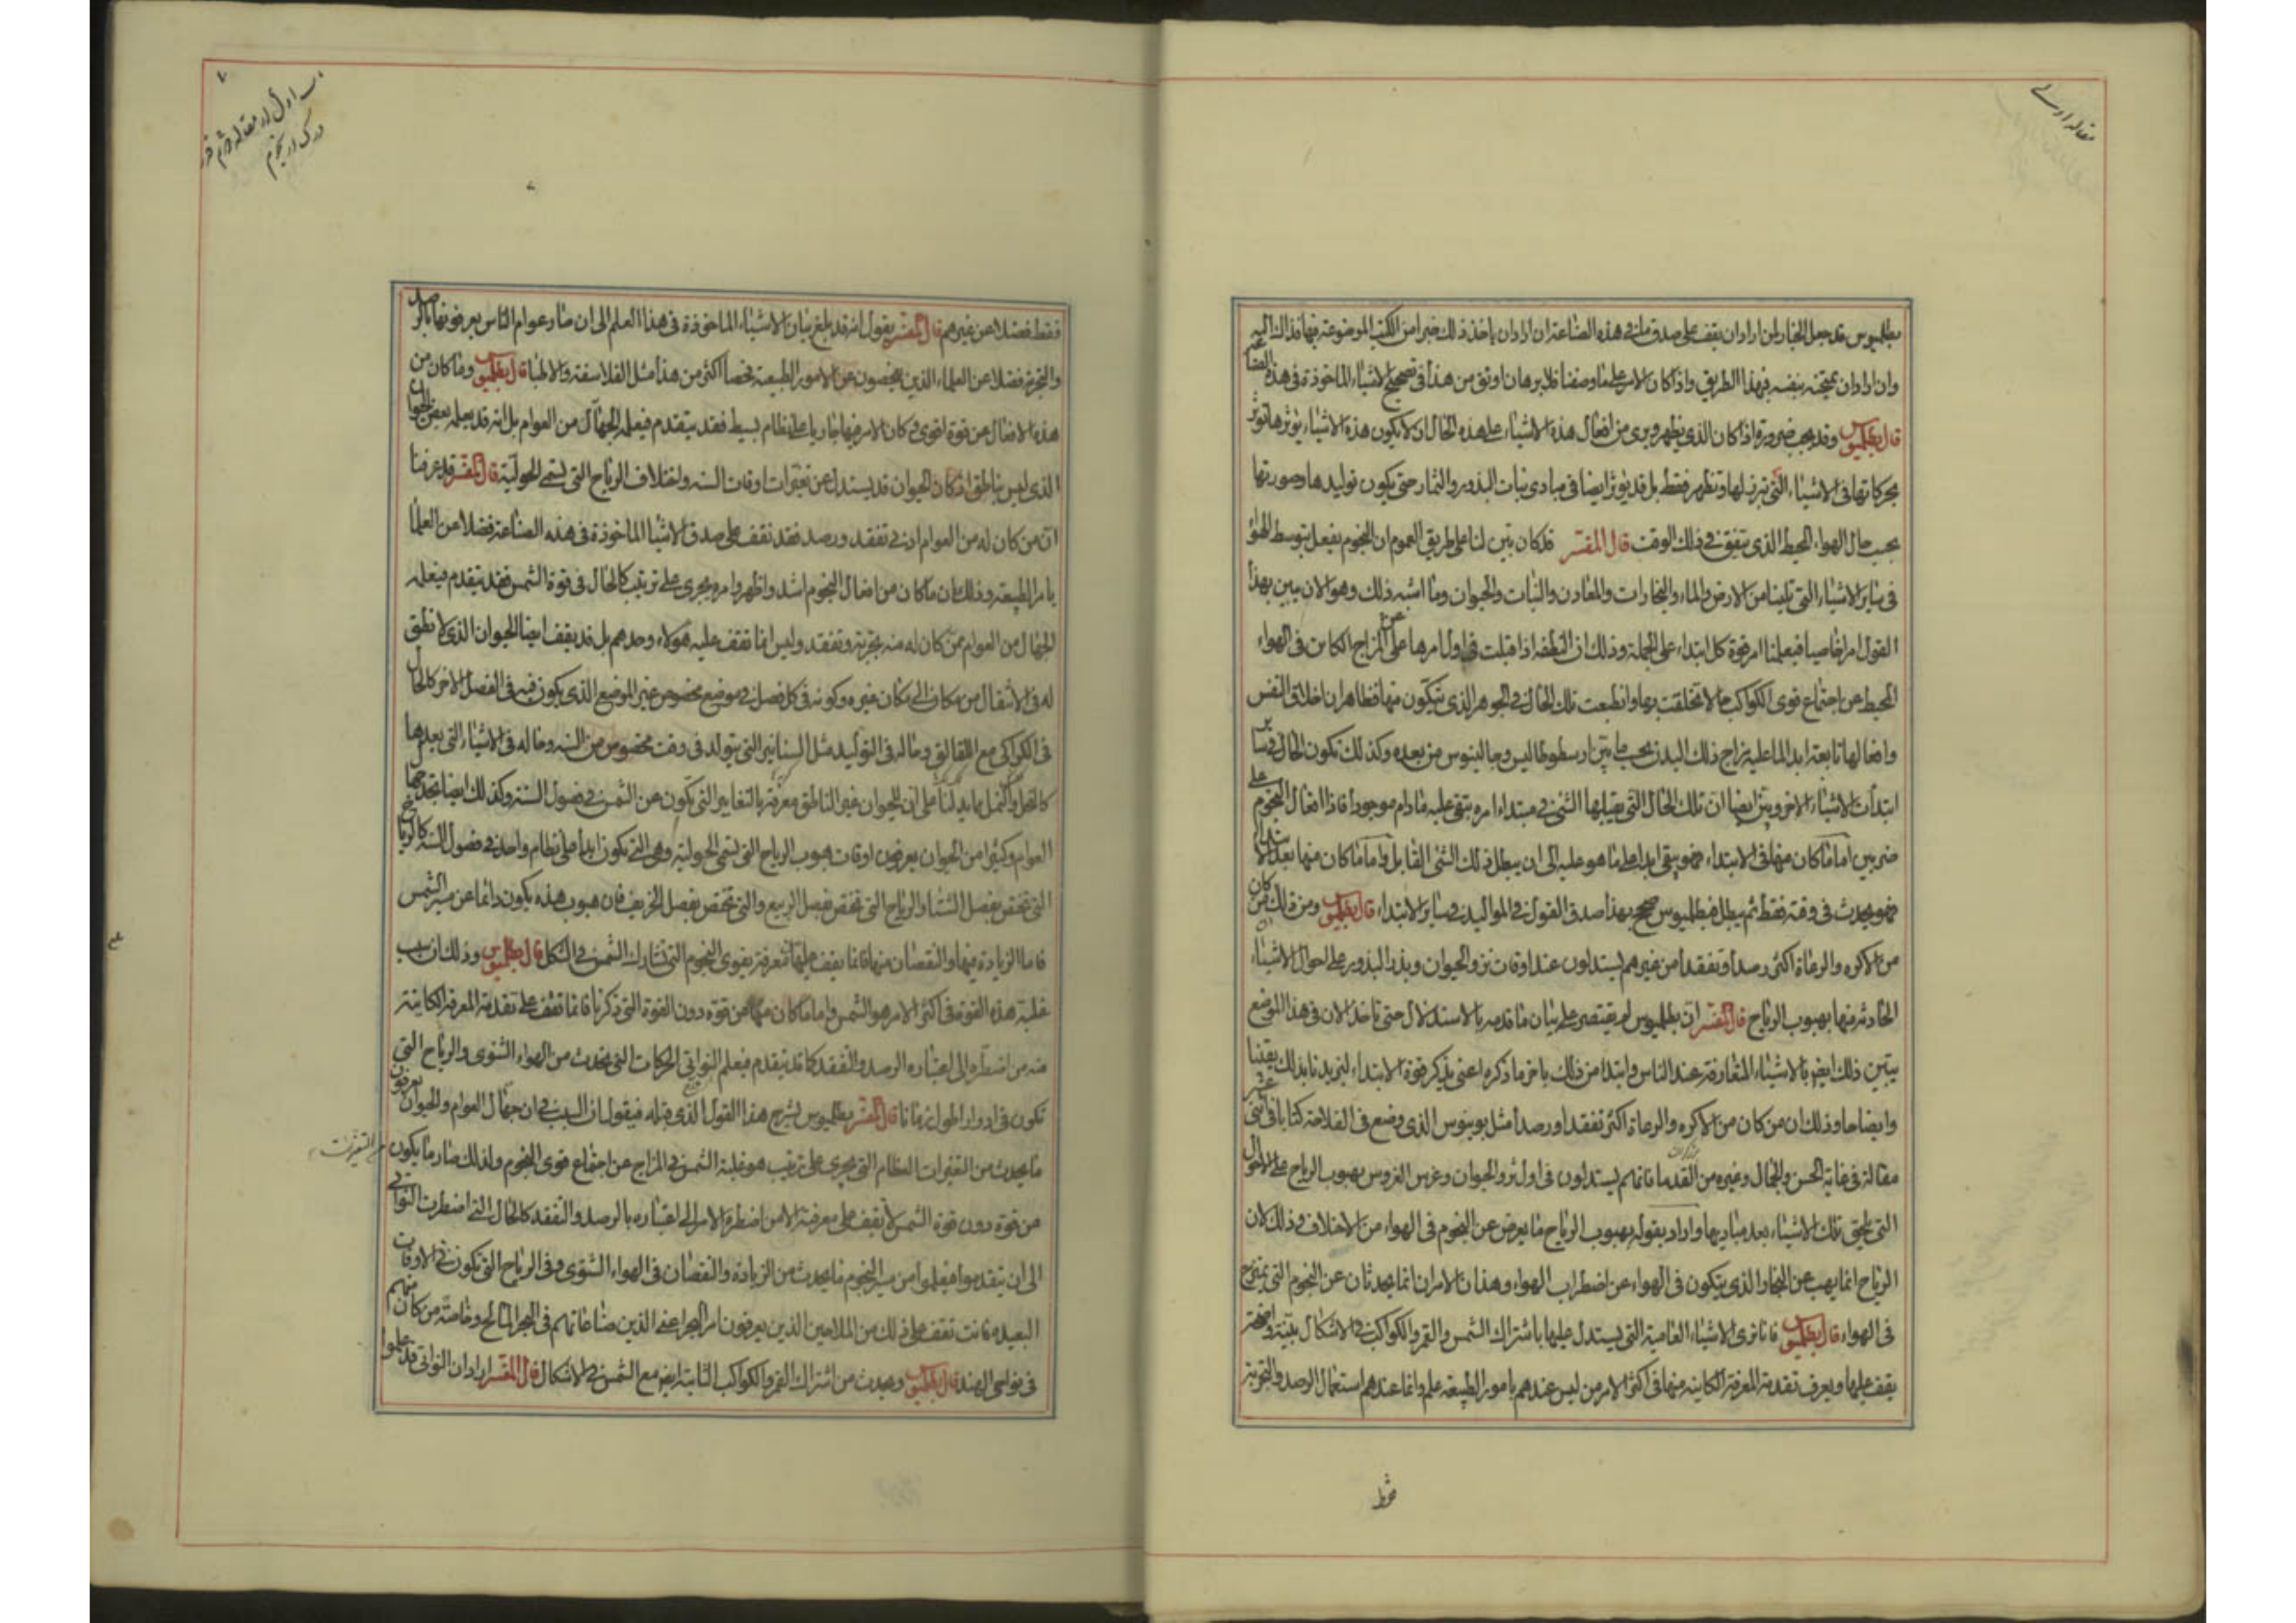 مقاله اولى
بطلميوس قد جعل الخيار لمن اراد ان يقف على صدق ما فى هذه الصناعة ان اراد ان ياخذ ذلك خبرا من الكتب الموضوعة فيها فذاك اليه
وان اراد ان يمتحنه بنفسه فبهذا الطريق واذا كان الامر على ما وصفنا فلا برهان اوثق من هذا فى تصحيح الاشياء الماخوذة فى هذه الصناعة
قال بطلميوس وقد يجب ضرورة اذا كان الذى يظهر ويرى من افعال هذه الاشياء على هذه الحال ان لا يكون هذه الاشياء يؤثرها تؤثر
بحركاتها فى الاشياء التى تبرز لها وتظهر فقط بل قد يؤثر ايضا فى مبادى نبات البذور والثمار حتى يكون توليدها وصورتها
بحسب حال الهواء المحيط الذى يتفق فى ذلك الوقت قال المفسر قد كان بين لنا على طريق العموم ان النجوم يفعل بتوسط الهواء
فى ساير الاشياء التى تلينا من الارض والماء والبخارات والمعادن والنبات والحيوان وما اشبه ذلك وهو الان يبين بهذا
القول امرا خاصيا فيعلمنا امر قوة كل ابتداء على الجملة وذلك ان النطفه اذا قبلت فى اول امرها عن المزاج الكاين فى الهواء
المحيط عن اجتماع قوى الكواكب حالا تخلقت بها وانطبعت تلك الحال فى الجوهر الذى يتكون منها فظاهر ان اخلاق النفس
وافعالها تابعة ابدا لما عليه مزاج ذلك البدن بحسب ما بين ارسطوطاليس وجالينوس من بعده وكذلك تكون الحال فى ساير
ابتدأت الاشياء الاخر وبين ايضا ان تلك الحال التى يقبلها الشئ فى مبتداء امره يبقى عليه ما دام موجودا فاذا افعال النجوم على
ضربين اما ما كان منها فى الابتداء فهو يبقى ابدا على ما هو عليه الى ان يبطل ذلك الشئ القابل واما ما كان منها بعد الابتداء
فهو يحدث فى وقته فقط ثم يبطل فبطلميوس صحح بهذا صدق القول فى المواليد وساير الابتداء قال بطلميوس ومن ذلك ان من كان
من الاكره والرعاة اكثر رصدا وتفقدا من غيرهم يستدلون عند اوقات نزو الحيوان وبذر البذور على احوال الاشياء
الحادثه منها بهبوب الرياح قال المفسر ان بطلميوس لم يقتصر على بيان ما قدمه بالاستدلال حتى تاخذ الان فى هذا الموضع
يبين ذلك ايضا بالاشياء المتعارفة عند الناس وابتدا من ذلك باخر ما ذكره اعنى بذكر قوة الابتداء ليزيدنا بذلك يقينا
وايضاحا وذلك ان من كان من الاكره والرعاة اكثر تفقدا ورصدا مثل يونيوس الذى وضع فى الفلاحة كتابا فى اثنى عشر
مقالة فى غاية الحسن والجمال وغيره من القدما فانهم يستدلون فى اول نزو الحيوان وغرس الغروس بهبوب الرياح على الاحوال
التى تلحق تلك الاشياء بعد مباديها واراد بقوله بهبوب الرياح ما يعرض عن النجوم فى الهواء من الاختلاف وذلك لان
الرياح انما يهب عن البخار الذى يتكون فى الهواء عن اضطراب الهواء وهذان الامران انما يحدثان عن النجوم التى يمتزج
فى الهواء قال بطلميوس فانا نرى الاشياء العامية التى يستدل عليها باشتراك الشمس والقمر والكواكب فى الاشكال بينة واضحة
يقف عليها ويعرف تقدمة المعرفة الكاينه منها فى اكثر الامر من ليس عندهم بامور الطبيعة علم وانما عندهم استعمال الرصد والتجربة
فقط
٧
فقط فضلا عن غيرهم قال المفسر يقول انه قد بلغ بيان الاشياء الماخوذة فى هذا العلم الى ان صار عوام الناس يعرفونها بالرصد
والتجربة فضلا عن العلماء الذين يفحصون عن الامور الطبيعية فحصا اكثر من هذا مثل الفلاسفة والاطبا قال بطلميوس وما كان من
هذه الافعال عن قوة اقوى فى كان الامر فيها جاريا على نظام بسيط فقد يتقدم فيعلمه الجهال من العوام بل انه قد يعلمه بعض الحيوان
الذى ليس بناطق اذ كان الحيوان قد يستدل عن تغيرات اوقات السنه واختلاف الرياح التى تسمى الحولية قال المفسر قد عرفنا
ان من كان له من العوام ادنى تفقد ورصد فقد نقف على صدق الاشيا الماخوذة فى هذه الصناعة فضلا عن العلما
بامر الطبيعة وذلك ان ما كان من افعال النجوم اشد واظهر وامره يجرى على ترتيب كالحال فى قوة الشمس فقد يتقدم فيعلمه
الجهال من العوام ممن كان له منه تجربة وتفقد وليس انما تقف عليه هولاء وحدهم بل قد يقف ايضا الحيوان الذى لا نطق
له فى الانتقال من مكان الى مكان غيره وكونه فى كل فصل فى موضع مخصوص غير الموضع الذى يكون فيه فى الفصل الاخر كالحال
فى الكراكى مع اللقالق وماله فى التوليد مثل السنانير التى يتولد فى وقت مخصوص من السنه وماله فى الاشياء التى يعدها
كالنحل والنمل مما يدلنا على ان للحيوان غير الناطق معرفة بالتغايير التى تكون عن الشمس فى فصول السنة وكذلك ايضا تجد جهال
العوام وكثيرا من الحيوان يعرفون اوقات هبوب الرياح التى تسمى الحولية وهى التى تكون ابدا على نظام واحد فى فصول السنة كالرياح
التى تختص بفصل الشتاء والرياح التى تختص بفصل الربيع والتى تختص بفصل الخريف فان هبوب هذه يكون دائما عن مسير الشمس
فاما الزيادة فيها والنقصان منها فانما يقف عليها بمعرفة بقوى النجوم التى تشارك الشمس فى الشكل قال بطلميوس وذلك ان سبب
غلبة هذه القوة فى اكثر الامر هو الشمس واما ما كان منها عن قوة دون القوة التى ذكرنا فانما تقف على تقدمة المعرفة الكاينة
منه من اضطره الى اعتباره الرصد والتفقد كما قد يتقدم فيعلم النواتى الحركات التى تحدث من الهواء الشتوى والرياح التى
تكون فى ادوار اطول زمانا قال المفسر بطلميوس يشرح هذا القول الذى قبله فيقول ان السبب فى ان جهال العوام والحيوان يعرفون
ما يحدث من التغيرات العظام التى تجرى على ترتيب هو غلبة الشمس فى المزاج عن اجتماع قوى النجوم ولذلك صار ما يكون
عن قوة دون قوة الشمس لا يقف على معرفته الا من اضطره الامر الى اعتباره بالرصد والتفقد كالحال التى اضطرت النواتى
الى ان يتقدموا فيعلموا من مسير النجوم ما يحدث من الزيادة والنقصان فى الهواء الشتوى وفى الرياح التى تكون فى الاوقات
البعيده فانت تقف على ذلك من الملاحين الذين يعرفون امر البحر اعنى الذين صناعاتهم فى البحر المالح وخاصة من كان منهم
فى نواحى الهند قال بطلميوس ويحدث من اشتراك القمر والكواكب الثابتة ايضا مع الشمس فى الاشكال قال المفسر اراد ان النواتى قد علموا